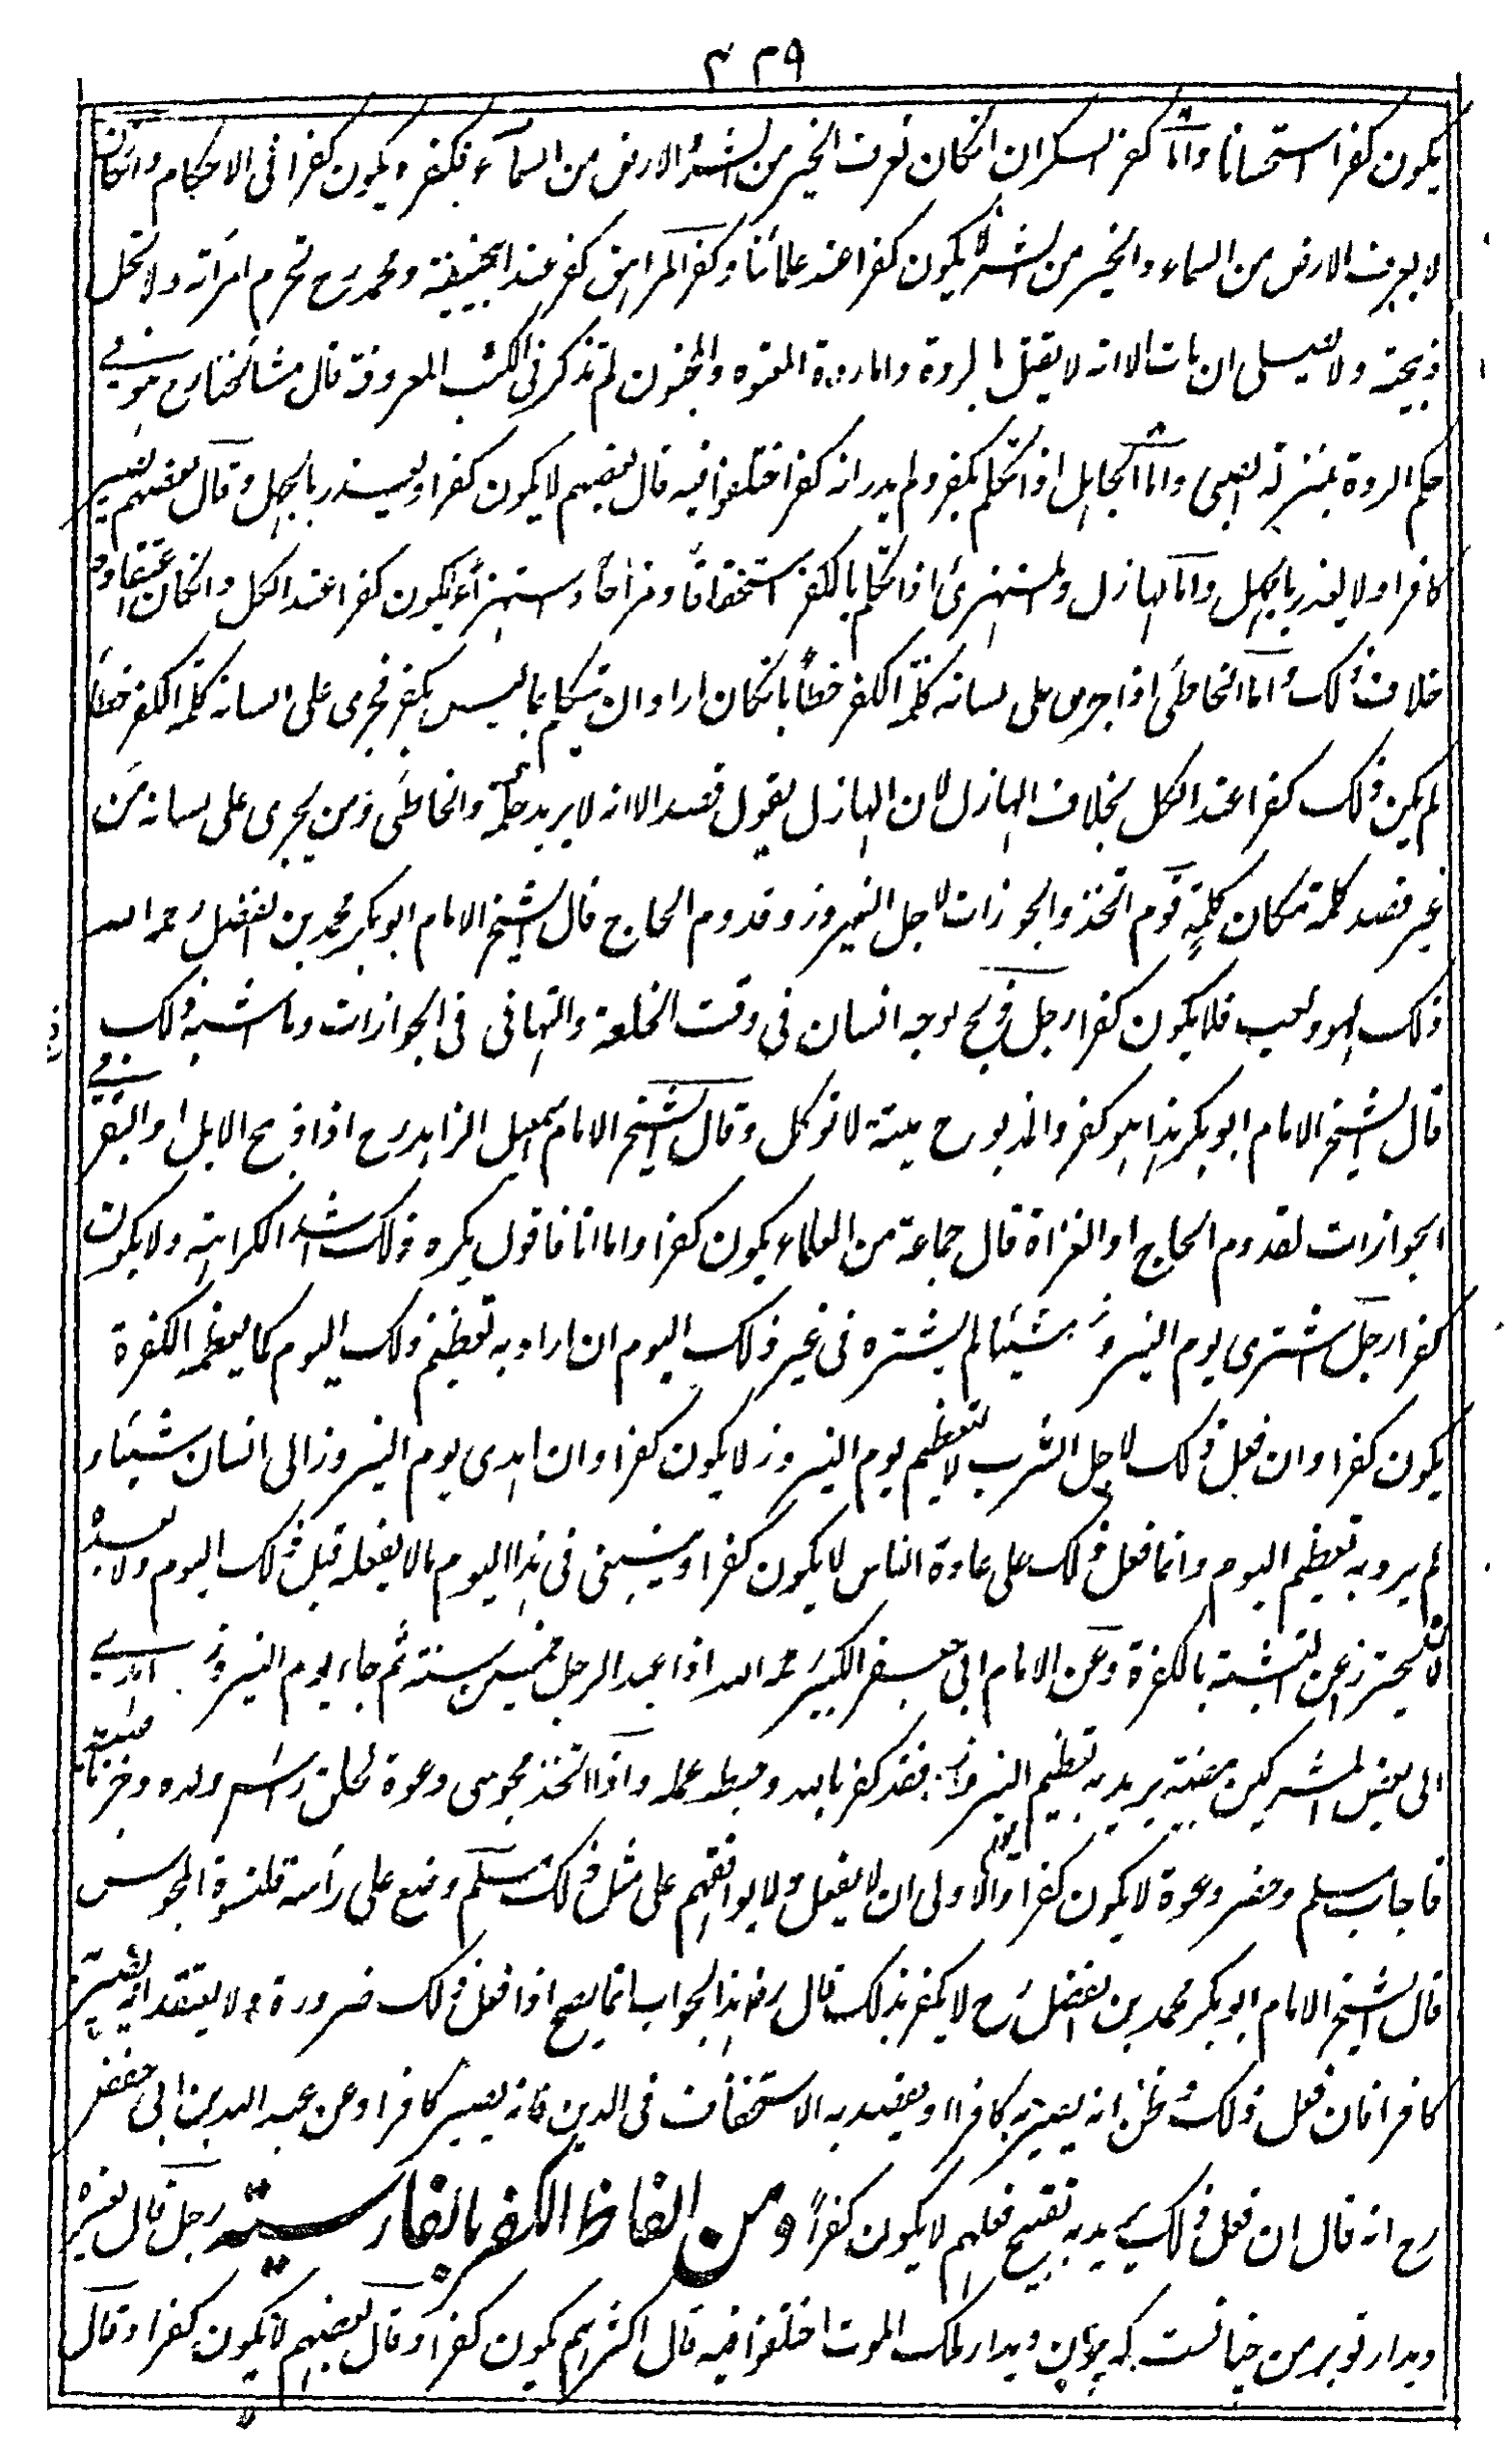 ۴۲۹
يكون كفرا استحسانا واما كفر السكران انكان يعرف الخير من الشر والارض من السماء فكفره يكون كفرا فى الاحكام وانكان
لا يعرف الارض من السماء والخير من الشر لا يكون كفرا عند علمائنا وكفر المراهق كفر عند ابيحنيفة ومحمد رح تحرم امرأته ولا تحل
ذبيحته ولا يصلى ان مات الا انه لا يقتل بالردة واما ردة المعتوه والمجنون لم تذكر فى الكتب المعروفة قال مشائخنا رح هو فى
حكم الردة بمنزلة الصبى واما الجاهل اذا تكلم بكفر ولم يدر انه كفر اختلفوا فيه قال بعضهم لا يكون كفرا ويعذر بالجهل وقال بعضهم يصير
كافرا ولا يعذر بالجهل واما الهازل والمستهزئ اذا تكلم بالكفر استخفافا ومزاحا واستهزاء يكون كفرا عند الكل وانكان اعتقاده
خلاف ذلك واما الخاطئ اذا جرى على لسانه كلمة الكفر خطأ بانكان اراد ان يتكلم بما ليس بكفر فجرى على لسانه كلمة الكفر خطأ
لم يكن ذلك كفرا عند الكل بخلاف الهازل لان الهازل يقول قصدا الا انه لا يريد حكمه والخاطئ من يجرى على لسانه من
غير قصد كلمة مكان كلمة قوم اتخذوا الجوزات لاجل النيروز وقدوم الحاج قال الشيخ الامام ابو بكر محمد بن الفضل رحمه الله
ذلك لهو ولعب فلا يكون كفرا رجل ذبح لوجه انسان فى وقت الخلعة والتهانى فى الجوازات وما اشبه ذلك
قال الشيخ الامام ابو بكر هذا هو كفر والمذبوح ميتة لا توكل وقال الشيخ الامام اسمعيل الزاهد رح اذا ذبح الابل او البقر فى
الجوازات لقدوم الحاج او الغزاة قال جماعة من العلماء يكون كفرا واما انا فاقول يكره ذلك اشد الكراهة ولا يكون
كفرا رجل اشترى يوم النيروز شيئا لم يشتره فى غير ذلك اليوم ان اراد به تعظيم ذلك اليوم كما يعظمه الكفرة
يكون كفرا وان فعل ذلك لاجل الشرب لا لتعظيم يوم النيروز لا يكون كفرا وان اهدى يوم النيروز الى انسان شيئا و
لم يرد به تعظيم اليوم وانما فعل ذلك على عادة الناس لا يكون كفرا وينبغى فى هذا اليوم مالا يفعله قبل ذلك اليوم ولا بعده
يحترز عن التشبه بالكفرة وعن الامام ابى حفص الكبير رحمه الله اذا عبد الرجل خمسين سنة ثم جاء يوم النيروز اهدى
الى بعض المشركين بيضة يريد به تعظيم النيروز فقد كفر بالله وحبط عمله واذا اتخذ مجوسى دعوة لحلق رأس ولده
فاجاب مسلم وحضر دعوة لا يكون كفرا والاولى ان لا يفعل ولا يوافقهم على مثل ذلك مسلم وضع على رأسه قلنسوة المجوس
قال الشيخ الامام ابو بكر محمد بن الفضل رح لا يكفر بذلك قال رض هذا الجواب انما يصح اذا فعل ذلك ضرورة ولا يعتقد انه يصير به
كافرا فان فعل ذلك وظن انه يصير به كافرا او يقصد به الاستخفاف فى الدين فانه يصير كافرا وعن عبد الله بن ابى حفص
رح انه قال ان فعل ذلك يريد به تقبيح فعلهم لا يكون كفرا ومن الفاظ الكفر بالفارسية رجل قال لغيره
ديدار تو بر من چنانست كه چون ديدار ملك الموت اختلفوا فيه قال اكثرهم يكون كفرا وقال بعضهم لا يكون كفرا وقال